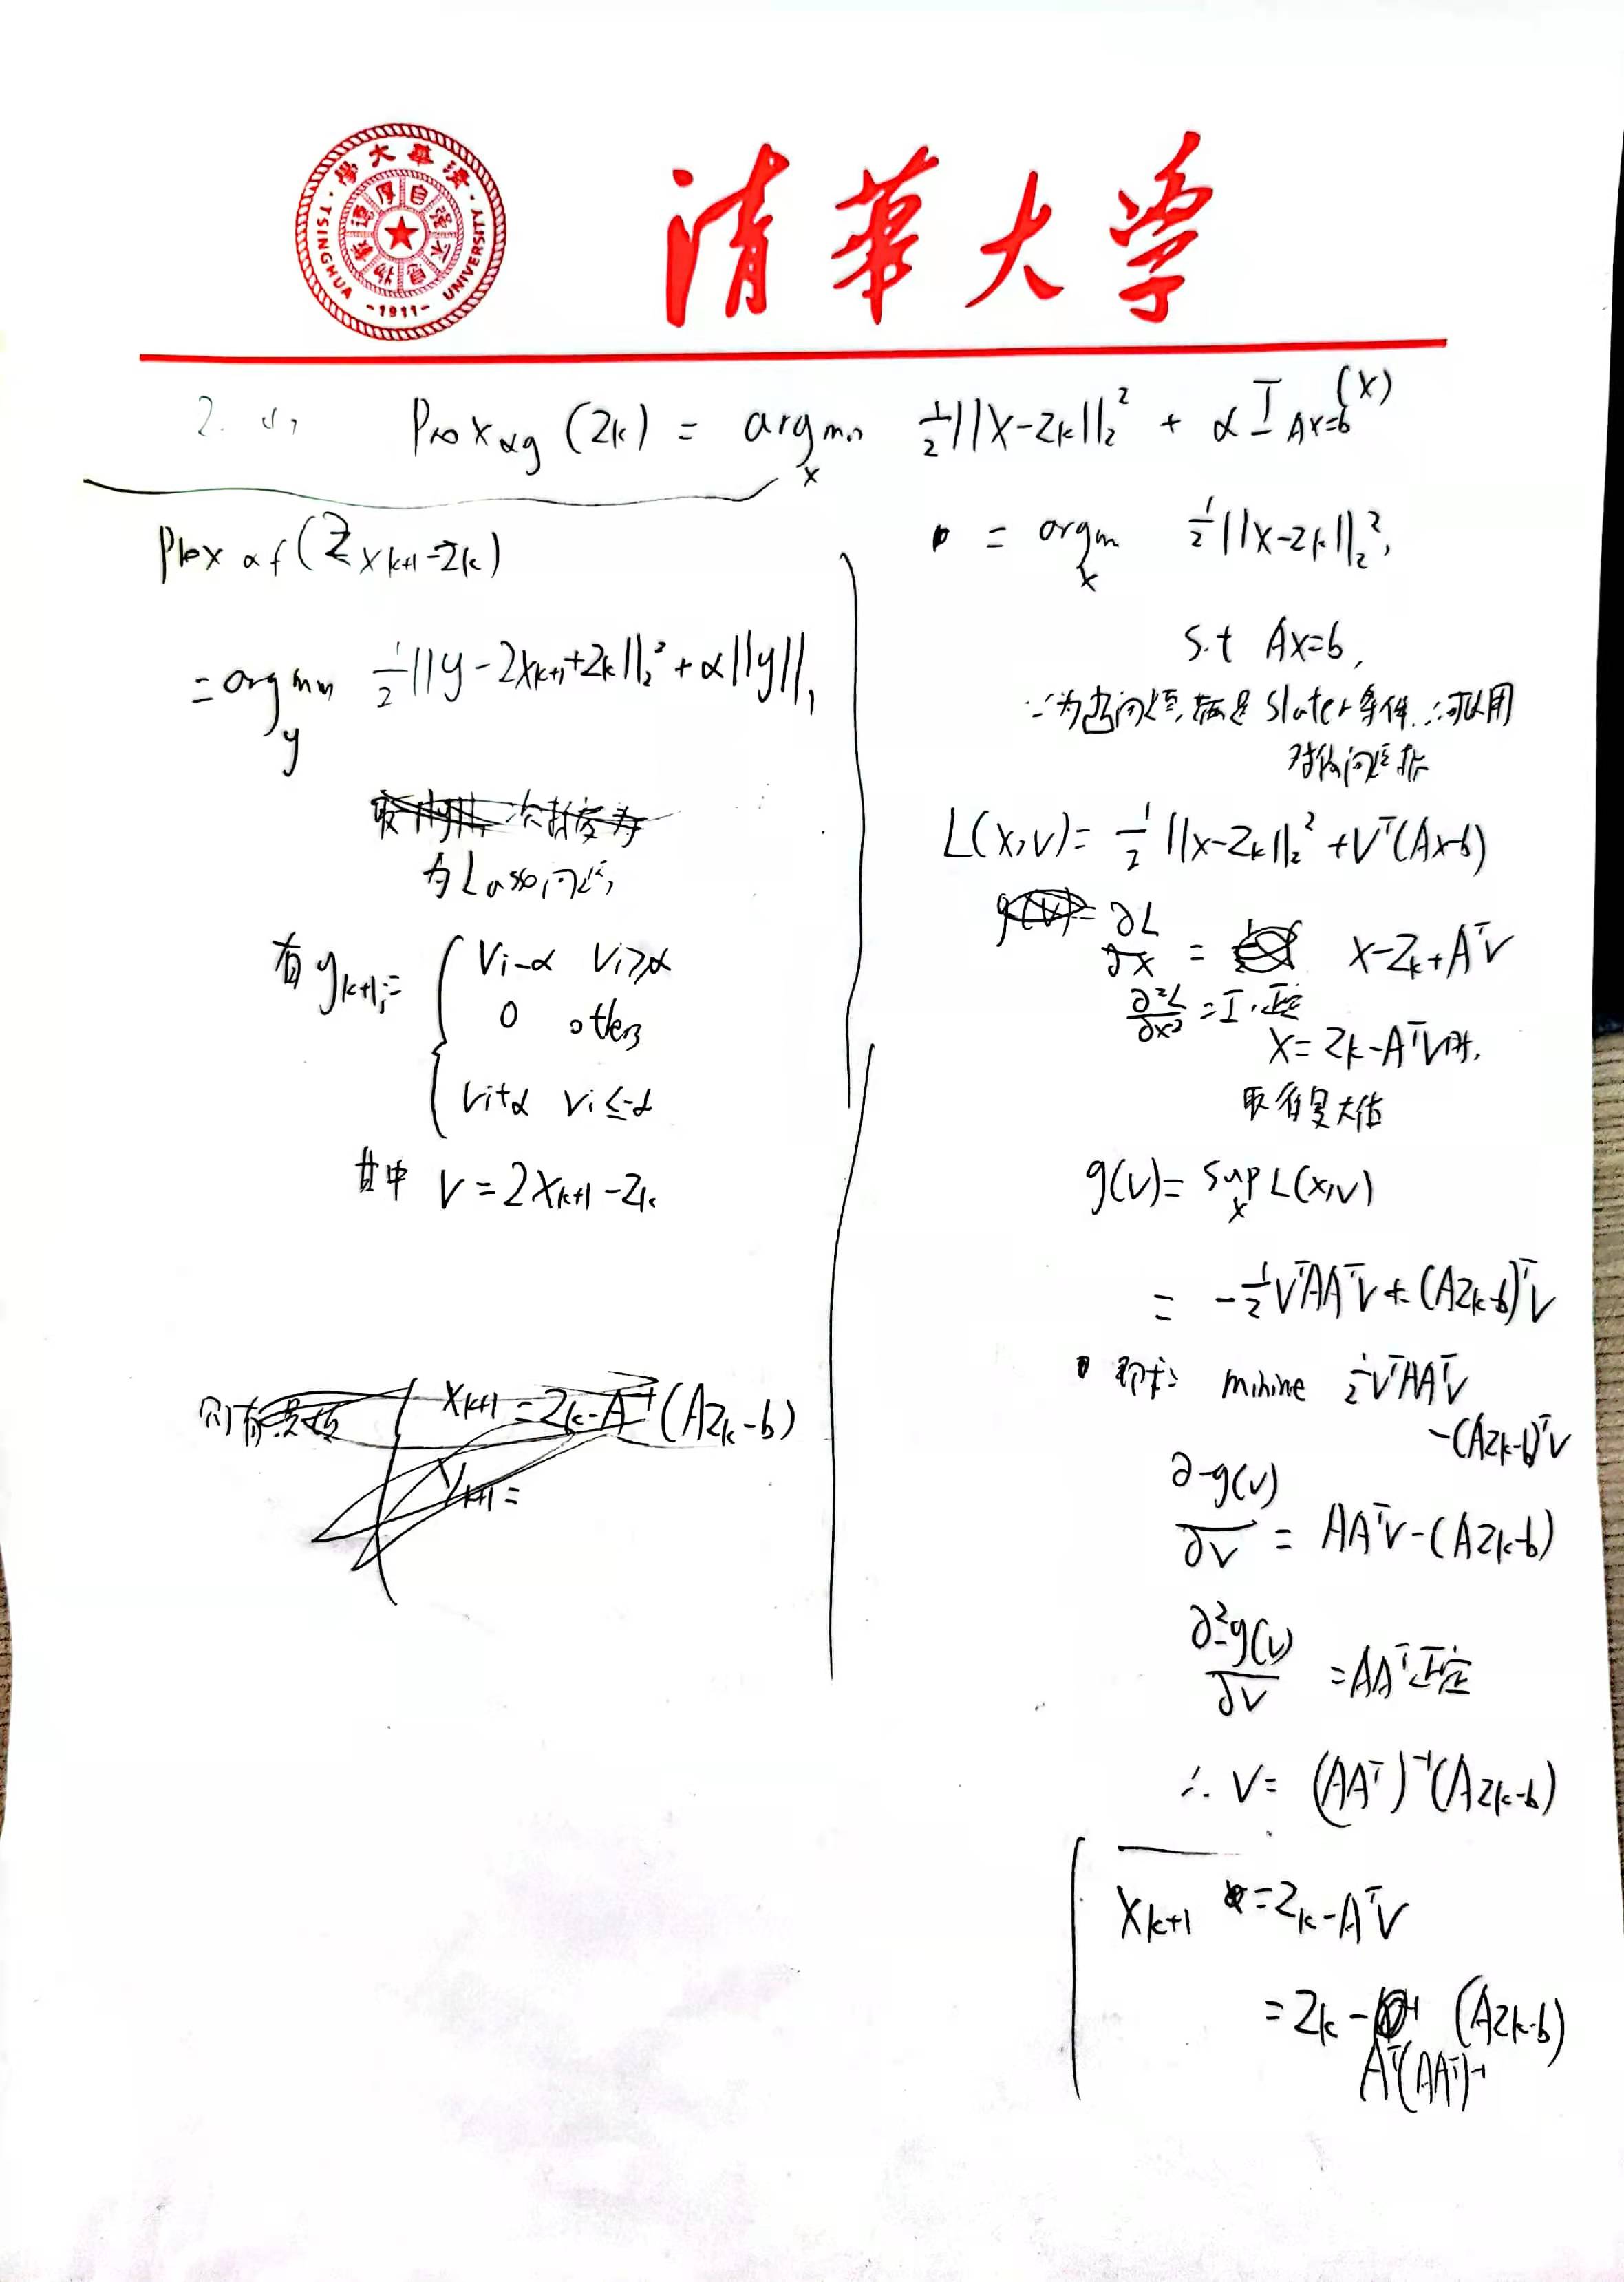 清華大学
TSINGHUA UNIVERSITY
-1911-
自强不息
厚德載物
2. (1) Prox_αg (Zk) = argmin_x ½||x-Zk||₂² + α I_{Ax=b}(x)
Prox αf (2xk+1-Zk)
= argmin_y ½||y-2xk+1+Zk||₂² + α||y||₁
为Lasso问题,
有 yk+1,i = { Vi-α Vi≥α
0 others
Vi+α Vi≤-α
其中 V=2xk+1-Zk
则有
xk+1 = Zk-A⁻¹(AZk-b)
yk+1 =
= argmin_x ½||x-Zk||₂²,
s.t Ax=b,
∵为凸问题,满足Slater条件.∴可以用
对偶问题
L(x,v)= ½||x-Zk||₂²+Vᵀ(Ax-b)
g(v)= ∂L/∂x = x-Zk+Aᵀv
∂²L/∂x² = I.正定
x= Zk-Aᵀv时,
取得最大值
g(v)= sup_x L(x,v)
= -½VᵀAAᵀV+(AZk-b)ᵀV
即求: minime ½VᵀAAᵀV
-(AZk-b)ᵀV
∂-g(v)/∂v = AAᵀv-(AZk-b)
∂²-g(v)/∂v = AAᵀ正定
∴ V= (AAᵀ)⁻¹(AZk-b)
xk+1 = Zk-Aᵀv
= Zk- Aᵀ(AAᵀ)⁻¹ (AZk-b)